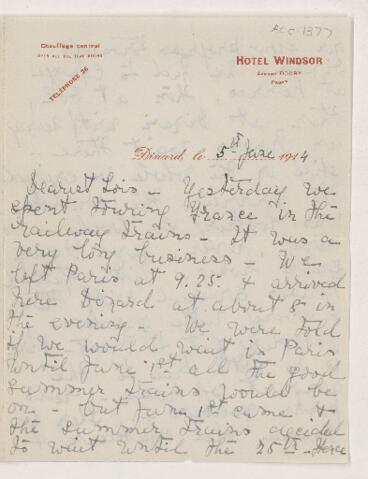 Chauffage central
HOTEL WINDSOR
TÉLÉPHONE 26
Dinard, le 5th June 1914
Dearest Lois - Yesterday we
spent touring France in the
railway trains - It was a
very long business - We
left Paris at 9.25 & arrived
here Dinard at about 5 in
the evening - We were told
if we would wait in Paris
until June 1st all the good
summer trains would be
on - but June 1st came &
the summer trains decided
to wait until the 25th - Hence